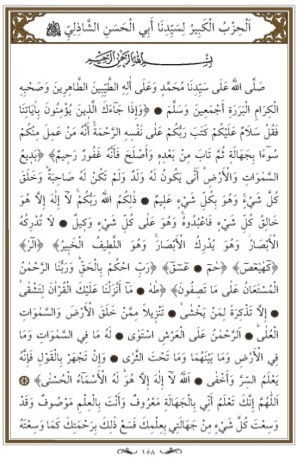 اَلْحِزْبُ الْكَبِيرُ لِسَيِّدِنَا أَبِي الْحَسَنِ الشَّاذِلِيِّ
بِسْمِ اللهِ الرَّحْمٰنِ الرَّحِيمِ
صَلَّى اللهُ عَلَى سَيِّدِنَا مُحَمَّدٍ وَعَلَى أٰلِهِ الطَّيِّبِينَ الطَّاهِرِينَ وَصَحْبِهِ
الْكِرَامِ الْبَرَرَةِ أَجْمَعِينَ وَسَلَّمَ ۞ ﴿وَإِذَا جَاءَكَ الَّذِينَ يُؤْمِنُونَ بِأٰيَاتِنَا
فَقُلْ سَلَامٌ عَلَيْكُمْ كَتَبَ رَبُّكُمْ عَلَى نَفْسِهِ الرَّحْمَةَ أَنَّهُ مَنْ عَمِلَ مِنْكُمْ
سُوءًا بِجَهَالَةٍ ثُمَّ تَابَ مِنْ بَعْدِهِ وَأَصْلَحَ فَأَنَّهُ غَفُورٌ رَحِيمٌ﴾ ﴿بَدِيعُ
السَّمٰوَاتِ وَالْأَرْضِ أَنّٰى يَكُونُ لَهُ وَلَدٌ وَلَمْ تَكُنْ لَهُ صَاحِبَةٌ وَخَلَقَ
كُلَّ شَيْءٍ وَهُوَ بِكُلِّ شَيْءٍ عَلِيمٌ ۞ ذٰلِكُمُ اللهُ رَبُّكُمْ لَا إِلٰهَ إِلَّا هُوَ
خَالِقُ كُلِّ شَيْءٍ فَاعْبُدُوهُ وَهُوَ عَلَى كُلِّ شَيْءٍ وَكِيلٌ ۞ لَا تُدْرِكُهُ
الْأَبْصَارُ وَهُوَ يُدْرِكُ الْأَبْصَارَ وَهُوَ اللَّطِيفُ الْخَبِيرُ﴾ ﴿الٓرٰ﴾
﴿كٓهٰيٰعٓصٓ﴾ ﴿حٰمٓ ۞ عٓسٓقٓ﴾ ﴿رَبِّ احْكُمْ بِالْحَقِّ وَرَبُّنَا الرَّحْمٰنُ
الْمُسْتَعَانُ عَلَى مَا تَصِفُونَ﴾ ﴿طٰهٰ ۞ مَا أَنْزَلْنَا عَلَيْكَ الْقُرْأٰنَ لِتَشْقٰى
۞ إِلَّا تَذْكِرَةً لِمَنْ يَخْشٰى ۞ تَنْزِيلًا مِمَّنْ خَلَقَ الْأَرْضَ وَالسَّمٰوَاتِ
الْعُلٰى ۞ اَلرَّحْمٰنُ عَلَى الْعَرْشِ اسْتَوٰى ۞ لَهُ مَا فِي السَّمٰوَاتِ وَمَا
فِي الْأَرْضِ وَمَا بَيْنَهُمَا وَمَا تَحْتَ الثَّرٰى ۞ وَإِنْ تَجْهَرْ بِالْقَوْلِ فَإِنَّهُ
يَعْلَمُ السِّرَّ وَأَخْفٰى ۞ اَللهُ لَا إِلٰهَ إِلَّا هُوَ لَهُ الْأَسْمَاءُ الْحُسْنٰى﴾ ۞
اَللّٰهُمَّ إِنَّكَ تَعْلَمُ أَنِّي بِالْجَهَالَةِ مَعْرُوفٌ وَأَنْتَ بِالْعِلْمِ مَوْصُوفٌ وَقَدْ
وَسِعْتَ كُلَّ شَيْءٍ مِنْ جَهَالَتِي بِعِلْمِكَ فَسَعْ ذٰلِكَ بِرَحْمَتِكَ كَمَا وَسِعْتَهُ
١٥٨